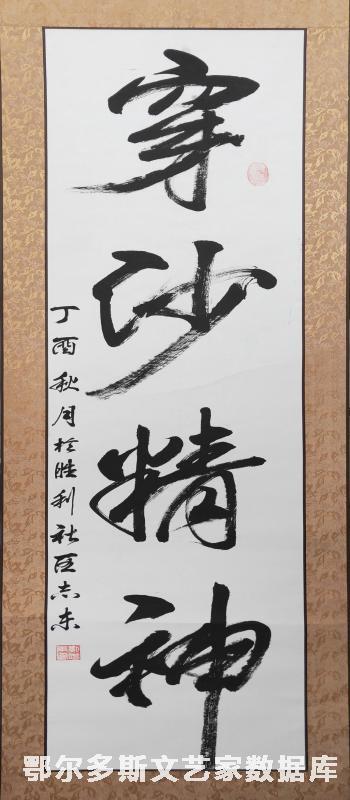 穿沙精神
丁酉秋月於胜利社区志东
鄂尔多斯文艺家数据库